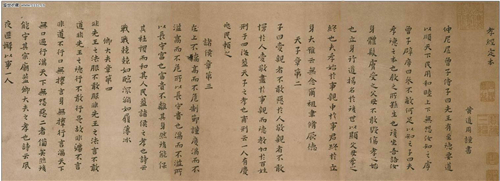 孝經定本
仲尼居曾子侍子曰先王有至德要道
以順天下民用和睦上下無怨汝知之乎
曾子避席曰參不敏何足以知之子曰夫
孝德之本也教之所繇生也復坐吾語汝
身體髮膚受之父母不敢毀傷孝之始
也立身行道揚名於後世以顯父母孝之
終也夫孝始於事親中於事君終於立
身大雅云無念爾祖聿脩厥德
天子章第二
子曰愛親者不敢惡於人敬親者不敢
慢於人愛敬盡於事親而德教加於百姓
刑于四海蓋天子之孝也甫刑云一人有慶
兆民賴之
諸侯章第三
在上不驕高而不危制節謹度滿而不
溢高而不危所以長守貴也滿而不溢所
以長守富也富貴不離其身然後能保
其社稷而和其民人蓋諸侯之孝也詩云
戰戰兢兢如臨深淵如履薄冰
卿大夫章第四
非先王之法服不敢服非先王之法言不敢
道非先王之德行不敢行是故非法不言
非道不行口無擇言身無擇行言滿天下
無口過行滿天下無怨惡三者備矣然後
能守其宗廟蓋卿大夫之孝也詩云夙
夜匪懈以事一人